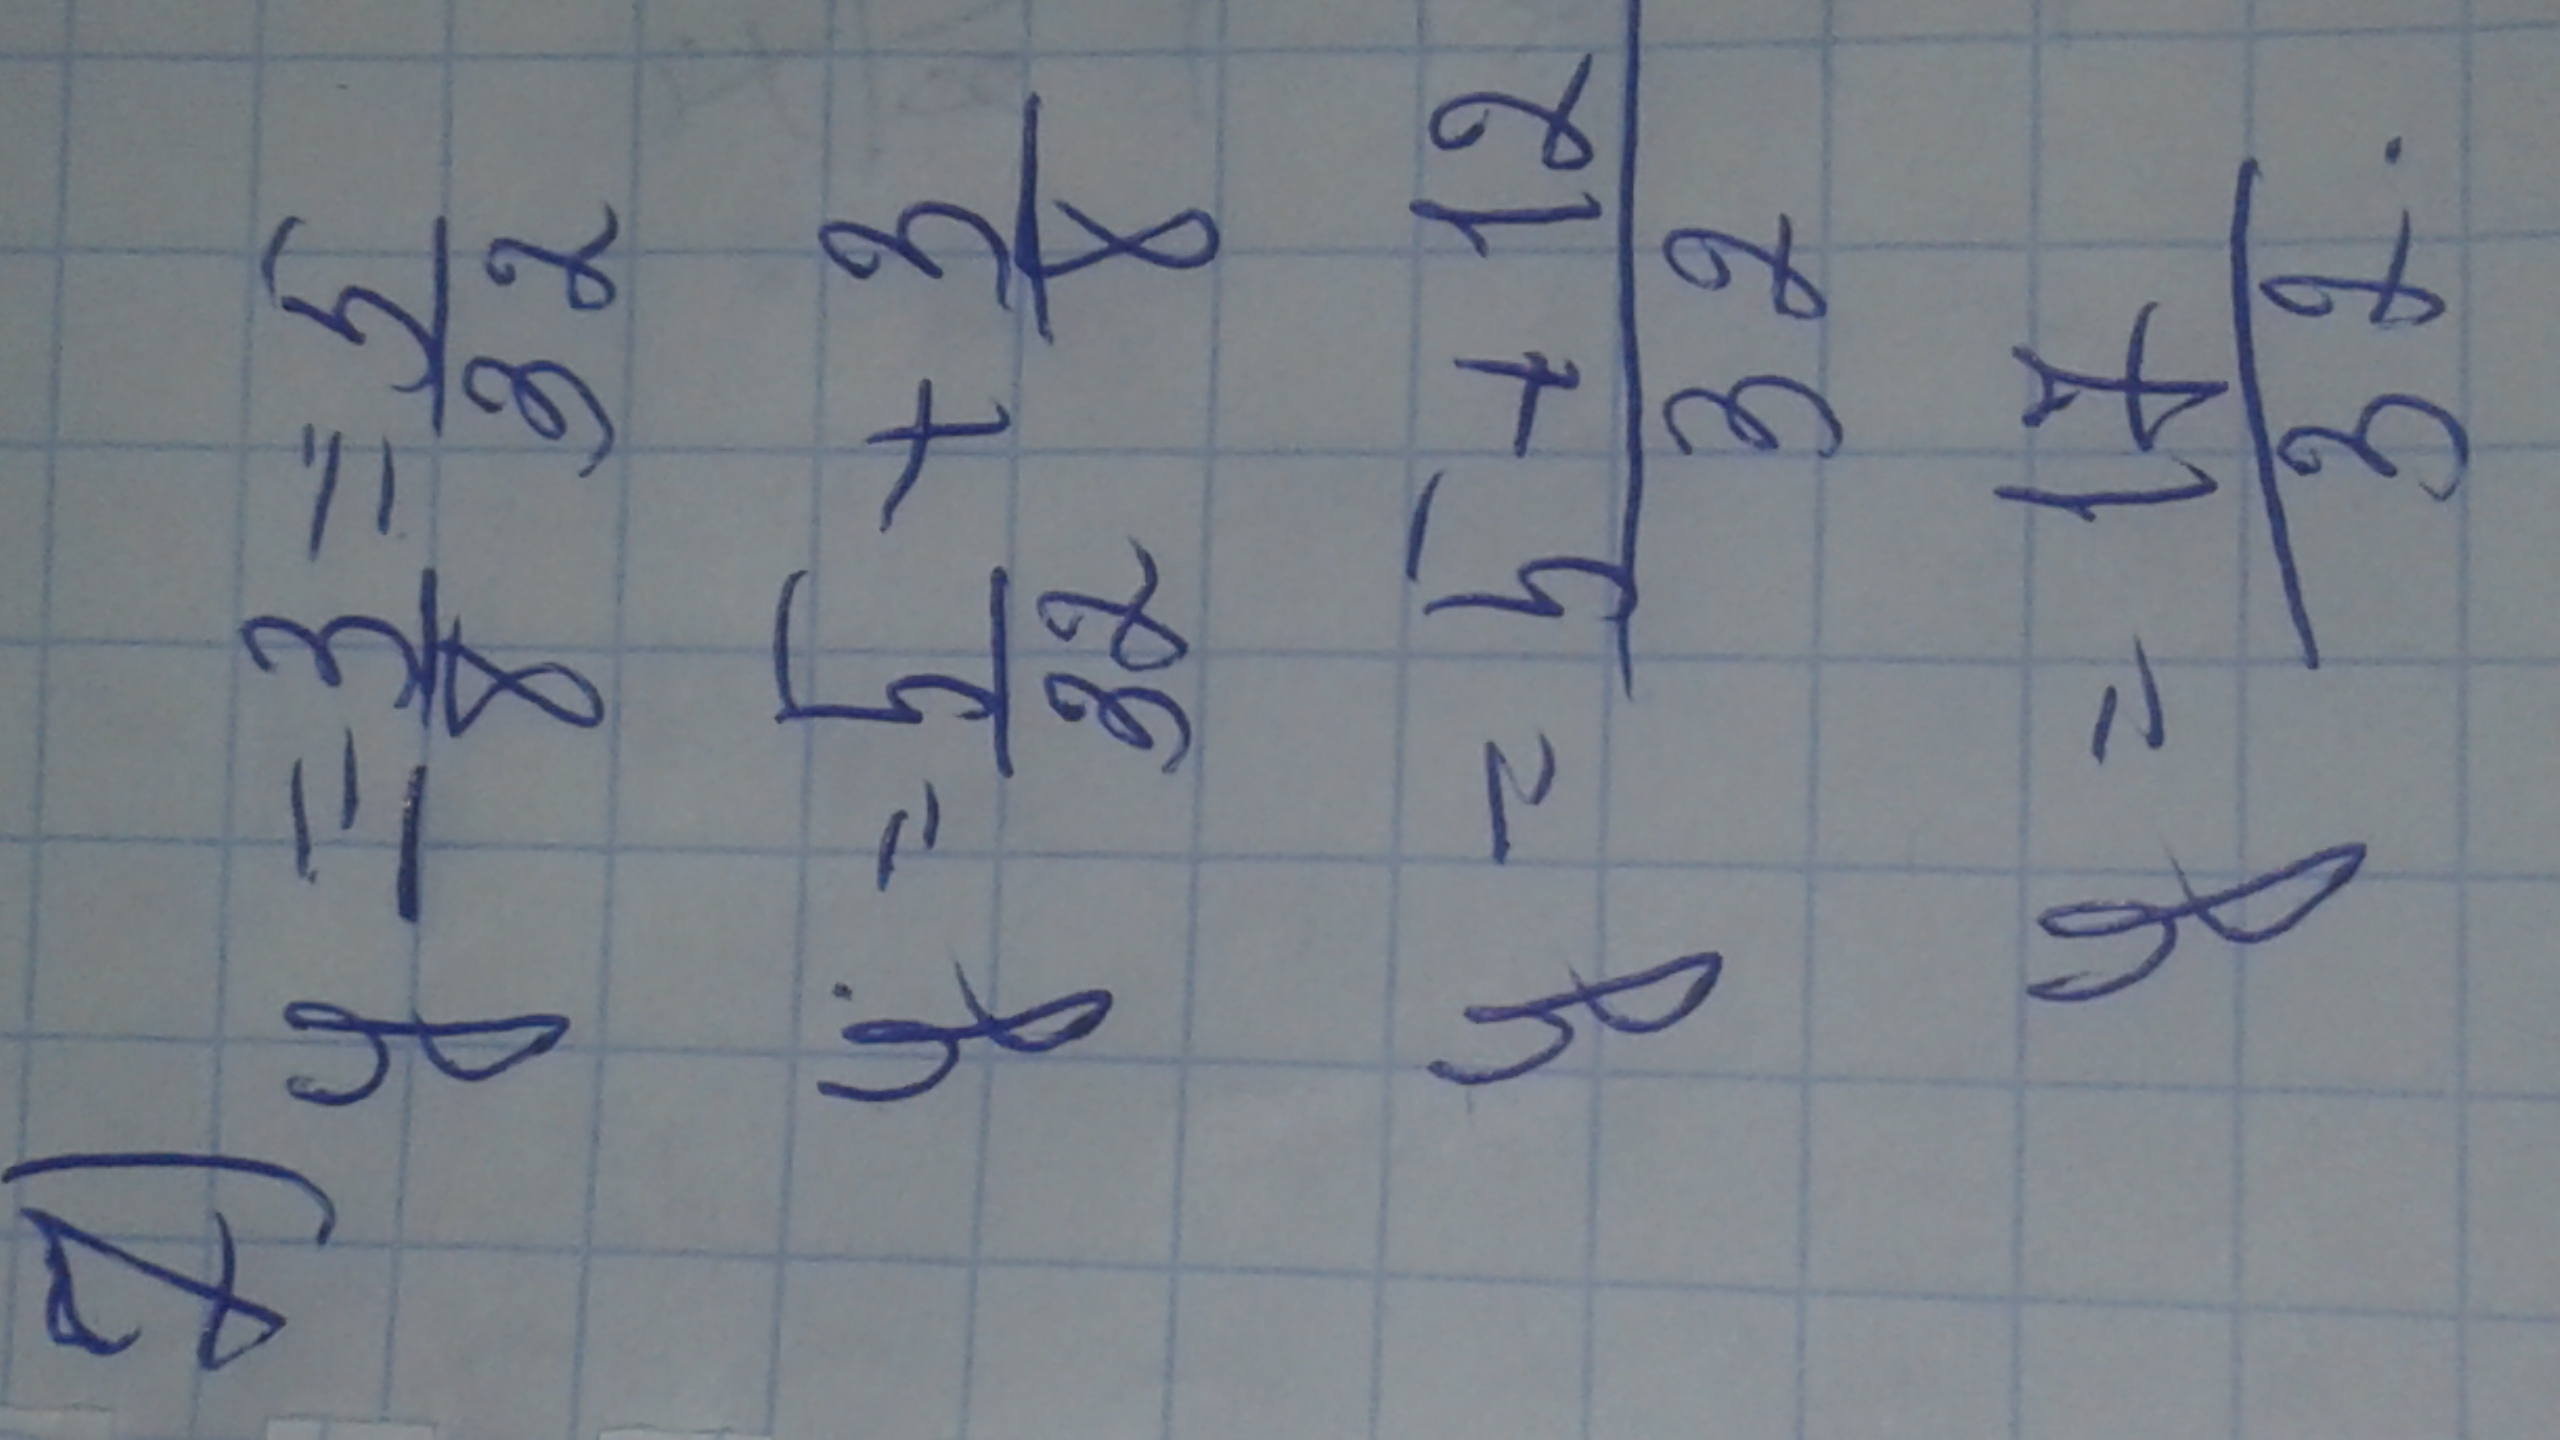 д) y - 3/8 = 5/32
y = 5/32 + 3/8
y = (5 + 12)/32
y = 17/32.